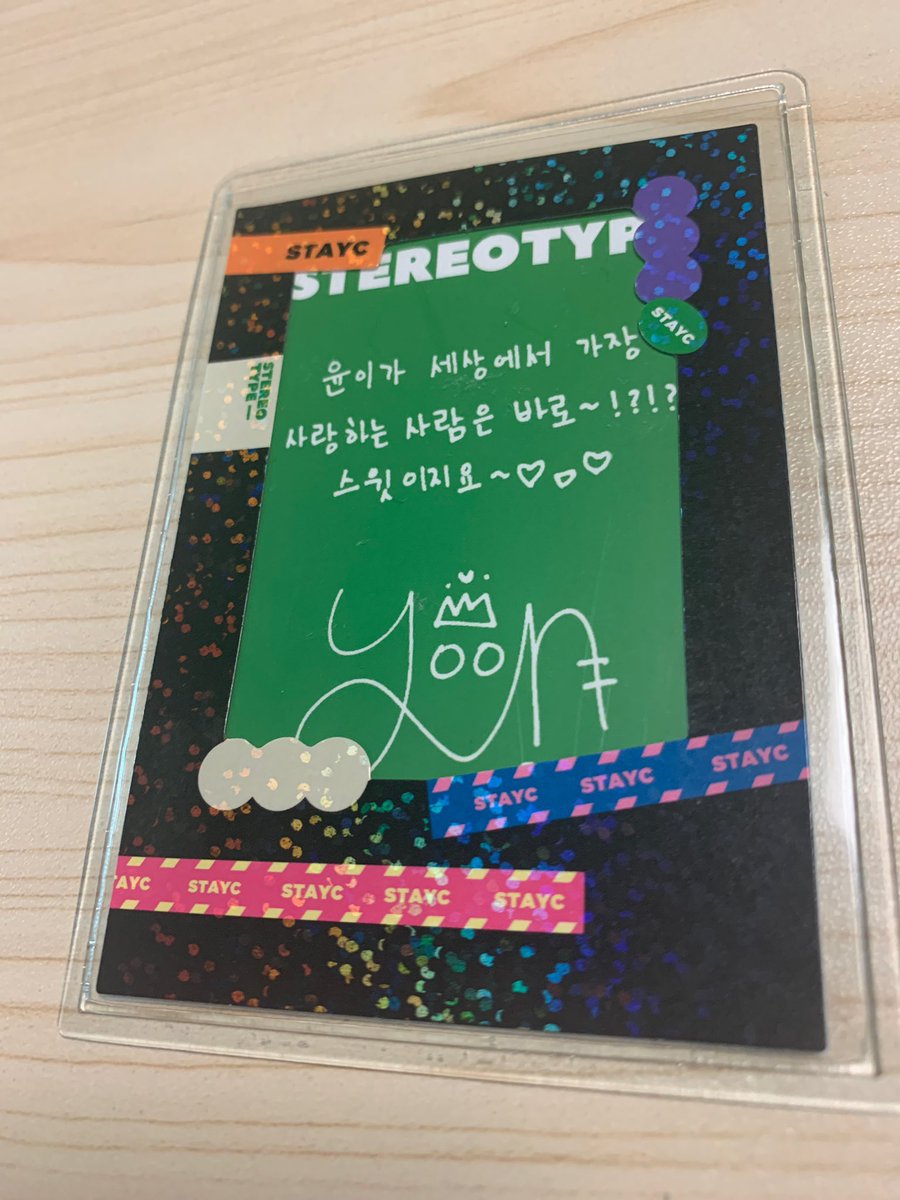 STAYC
STEREOTYP
STAYC
STEREO
TYPE—
윤이가 세상에서 가장
사랑하는 사람은 바로~!?!?
스윗이지요~♡▽♡
yoon
STAYC STAYC STAYC
TAYC STAYC STAYC STAYC STAYC